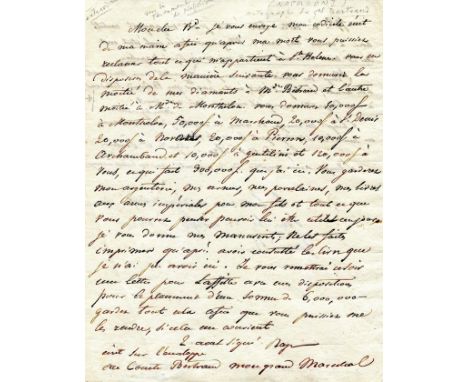 NAPOLEON
Monsieur Bd. je vous envoye mon codicile ecrit
de ma main afin qu'après ma mort vous puissiez
reclamer tout ce qui m'appartient à Ste Helene. vous en
disposerez de la maniere suivante. vous donnerez la
moitié de mes diamants à Me Bertrand et l'autre
moitié à Me de Montholon. vous donnerez 50,000f
à Montholon, 50,000f à Marchand, 20,000f à St Denis
20,000f à Noverraz, 20,000f à Pierron, 10,000f à
Archambaud et 10,000f à gentilini et 120,000f à
vous, ce qui fait 300,000f. que j'ai ici. Vous garderez
mon argenterie, mes armes, mes porcelaines, mes livres
aux armes impériales pour mon fils et tout ce que
vous pourrez penser pouvoir lui être utile un jour
je vous donne mes manuscrits, ne les faites
imprimer qu'après avoir consulté les livres que
je n'ai pu avoir ici. Je vous remettrai
une lettre pour Laffitte avec mes dispositions
pour le placement d'une somme de 6,000,000
gardez tout cela afin que vous puissiez me
les rendre, si cela en
2 aout signé Nap
ecrit sur l'enveloppe
au Comte Bertrand mon grand Marechal